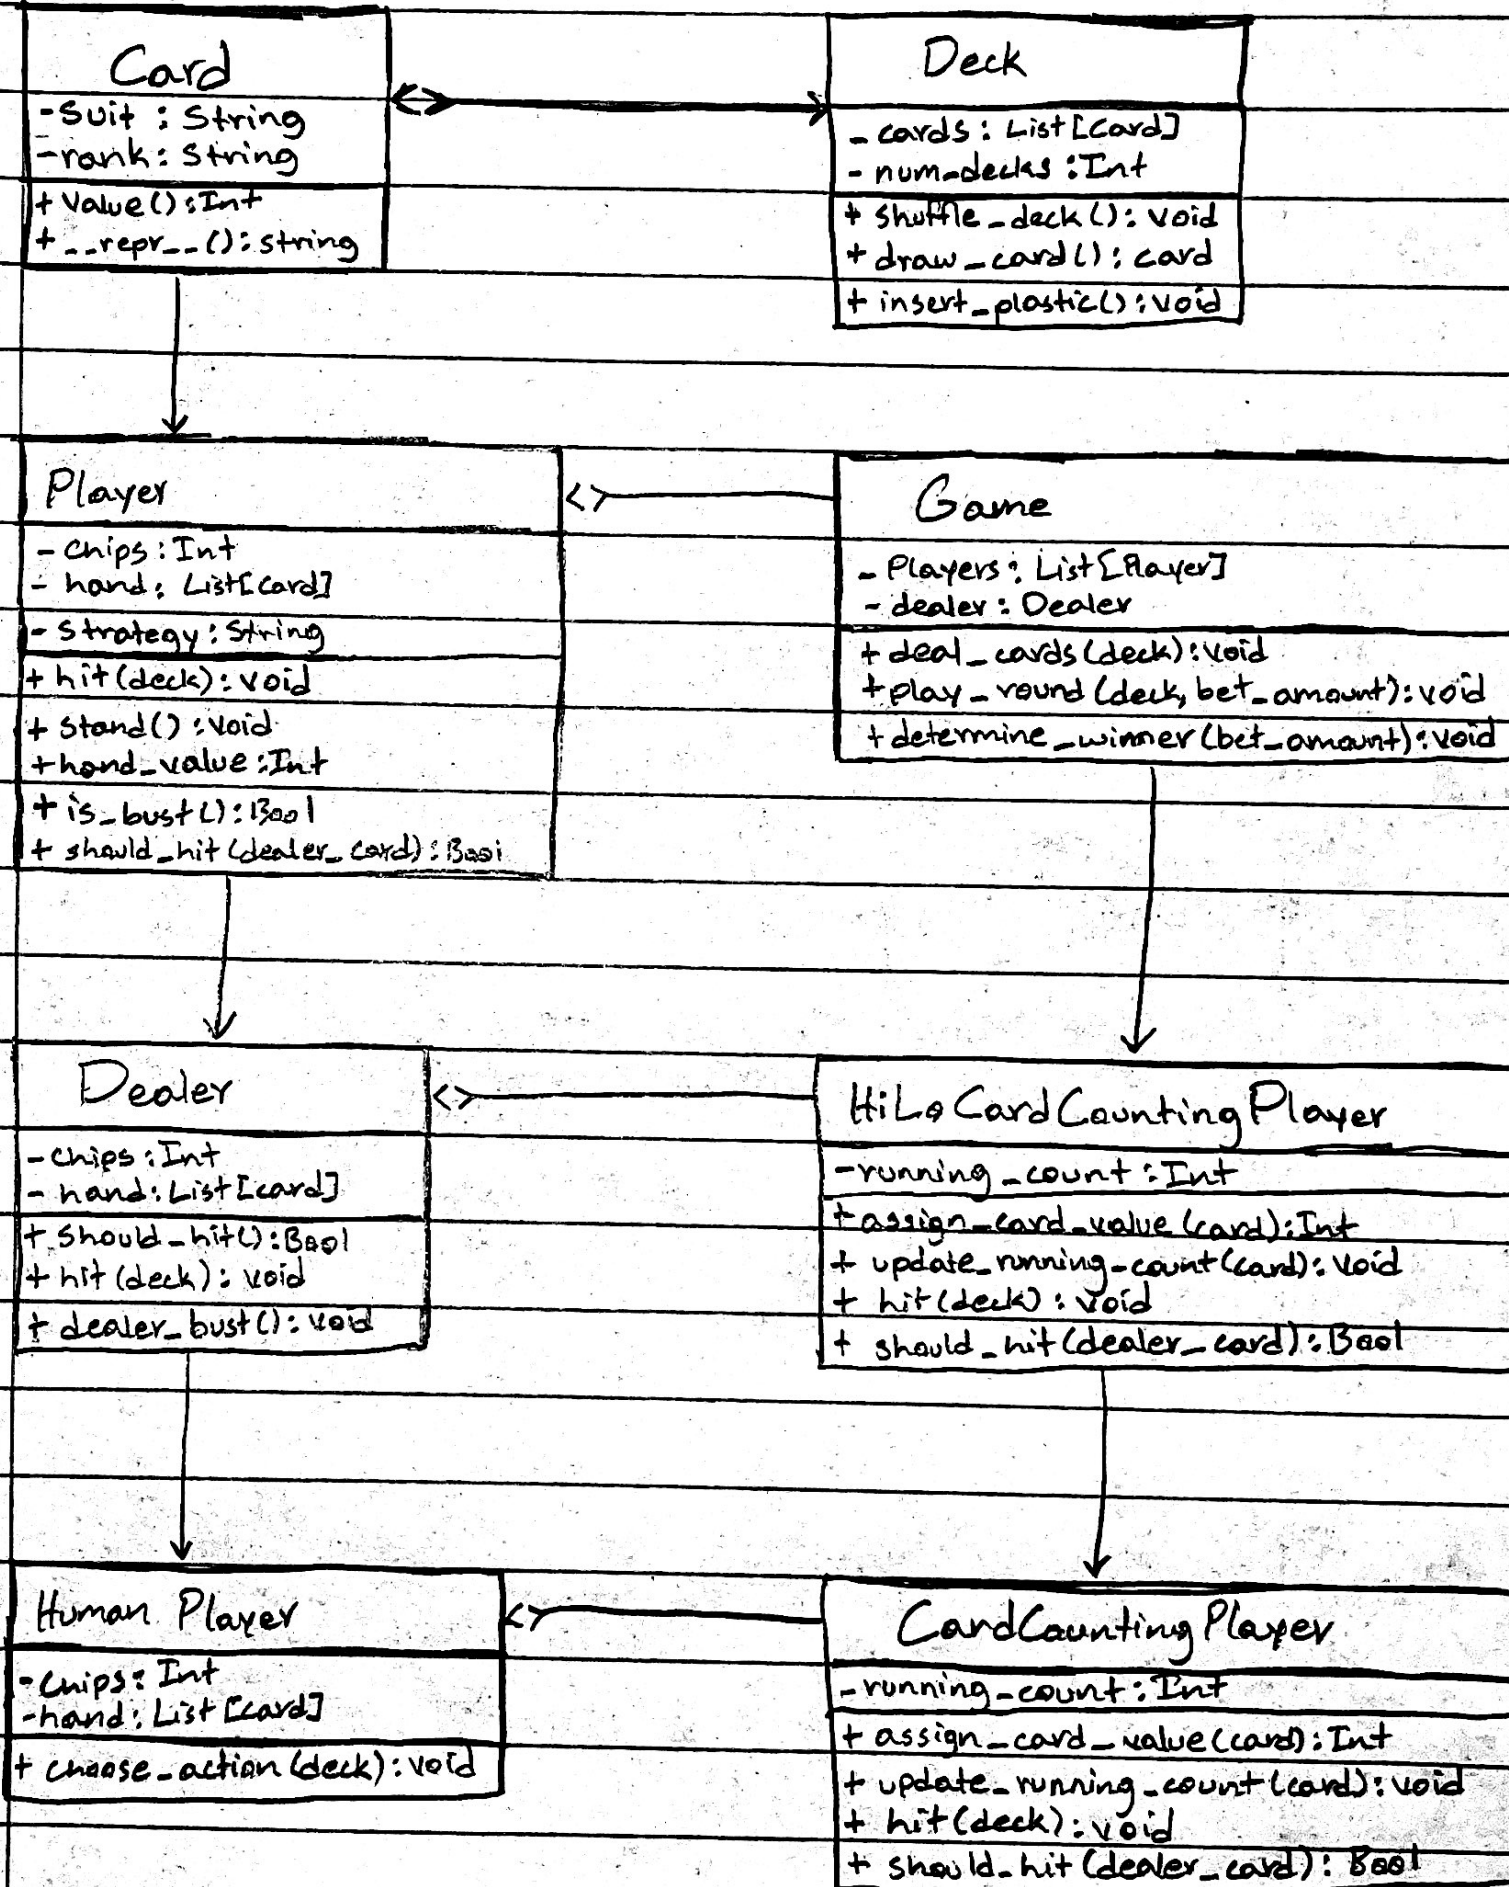 Card
- Suit : String
- rank : String
+ Value() : Int
+ __repr__() : string
Deck
- cards : List[Card]
- num_decks : Int
+ shuffle_deck() : void
+ draw_card() : card
+ insert_plastic() : void
Player
- chips : Int
- hand : List[card]
- strategy : String
+ hit(deck) : void
+ stand() : void
+ hand_value : Int
+ is_bust() : Bool
+ should_hit(dealer_card) : Bool
Game
- Players : List[Player]
- dealer : Dealer
+ deal_cards(deck) : void
+ play_round(deck, bet_amount) : void
+ determine_winner(bet_amount) : void
Dealer
- chips : Int
- hand : List[card]
+ should_hit() : Bool
+ hit(deck) : void
+ dealer_bust() : void
HiLoCardCountingPlayer
- running_count : Int
+ assign_card_value(card) : Int
+ update_running_count(card) : void
+ hit(deck) : void
+ should_hit(dealer_card) : Bool
Human Player
- chips : Int
- hand : List[card]
+ choose_action(deck) : void
CardCountingPlayer
- running_count : Int
+ assign_card_value(card) : Int
+ update_running_count(card) : void
+ hit(deck) : void
+ should_hit(dealer_card) : Bool